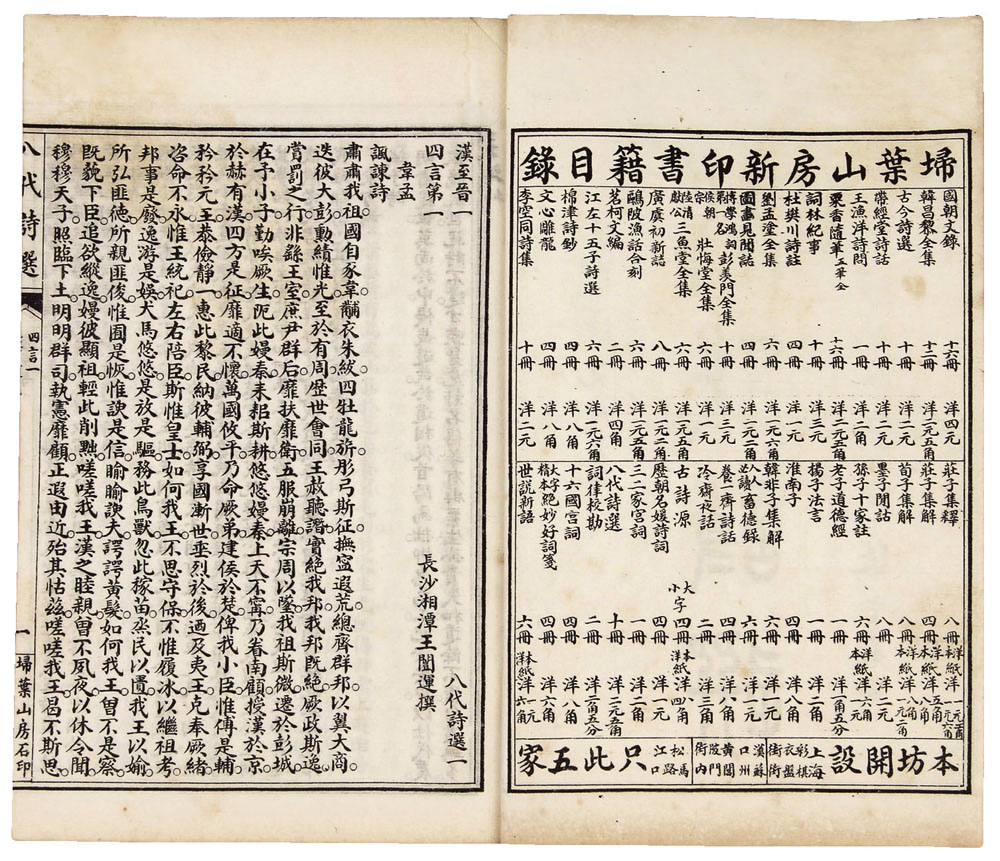 掃葉山房新印書籍目錄
國朝文錄 十六冊 洋四元
韓昌黎全集 十二冊 洋二元五角
古今詩選 十冊 洋二元
帶經堂詩話 十冊 洋二元
王漁洋詩問 一冊 洋二角
粟香隨筆 十六冊 洋二元五角
詞林紀事 十冊 洋三元
杜樊川詩註 四冊 洋一元
劉孟塗全集 六冊 洋一元六角
國畫見聞誌 四冊 洋一元二角
博學鴻詞第一名彭羨門全集 三冊 洋一元
侯朝宗壯悔堂全集 六冊 洋一元
陸清獻公三魚堂全集 六冊 洋一元五角
廣虞初新誌 八冊 洋一元二角
鷗陂漁話合刻 六冊 洋一元五角
茗柯文編 二冊 洋四角
江左十五子詩選 六冊 洋一元六角
棉津詩鈔 四冊 洋八角
文心雕龍 四冊 洋八角
李空同詩集 十冊 洋二元
莊子集釋 八冊
莊子集解 四冊
荀子集解 八冊
墨子閒詁 八冊 洋二元
老子道德經 一冊
孫子十家註 六冊
揚子法言 一冊 洋二角
淮南子 六冊 洋一元
韓非子集解 六冊 洋一元
人人必讀畜德錄 六冊 洋一元
養一齋詩話 四冊 洋八角
冷齋夜話 二冊 洋三角
古詩源 大字 四冊
小字
歷朝名媛詩詞 四冊 洋一元
三家宮詞 一冊 洋二角
八代詩選 十冊 洋二元五角
詞律校勘 二冊 洋二角五分
十六國宮詞 四冊 洋六角
大字精本絕妙好詞箋 四冊 洋八角
世說新語 六冊
本坊開設
上海彩衣街
棋盤街
蘇州閶門內
漢口黃陂街
松江馬路口
只此五家
八代詩選一
漢至晉一
長沙湘潭王闓運撰
四言第一
韋孟
諷諫詩
肅肅我祖。國自豕韋。黼衣朱紱。四牡龍旂。彤弓斯征。撫寧遐荒。總齊群邦。以翼大商。
迭彼大彭。勳績惟光。至於有周。歷世會同。王赧聽譖。實絕我邦。我邦既絕。厥政斯逸。
賞罰之行。非繇王室。庶尹群后。靡扶靡衛。五服崩離。宗周以墜。我祖斯微。遷於彭城。
在予小子。勤唉厥生。阨此嫚秦。耒耜斯耕。悠悠嫚秦。上天不寧。乃眷南顧。授漢於京。
於赫有漢。四方是征。靡適不懷。萬國攸平。乃命厥弟。建侯於楚。俾我小臣。惟傅是輔。
矜矜元王。恭儉靜一。惠此黎民。納彼輔弼。享國漸世。垂烈於後。迺及夷王。克奉厥緒。
咨命不永。惟王統祀。左右陪臣。斯惟皇士。如何我王。不思守保。不惟履冰。以繼祖考。
邦事是廢。逸游是娛。犬馬悠悠。是放是驅。務此鳥獸。忽此稼苗。烝民以匱。我王以媮。
所弘匪德。所親匪俊。惟囿是恢。惟諛是信。睮睮諛夫。諤諤黃髮。如何我王。曾不是察。
既藐下臣。追欲縱逸。嫚彼顯祖。輕此削黜。嗟嗟我王。漢之睦親。曾不夙夜。以休令聞。
穆穆天子。照臨下土。明明群司。執憲靡顧。正遐由近。殆其怙茲。嗟嗟我王。曷不斯思。
八代詩選 四言一 一 掃葉山房石印